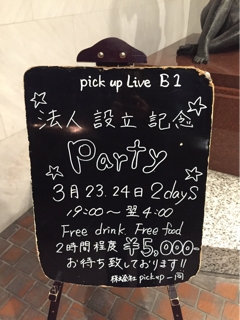 pick up Live B1
法人設立記念
Party
3月23.24日2days
19:00〜翌4:00
Free drink. Free food
2時間程度 ¥5,000-
お待ち致しております!!
株式会社pickup一同